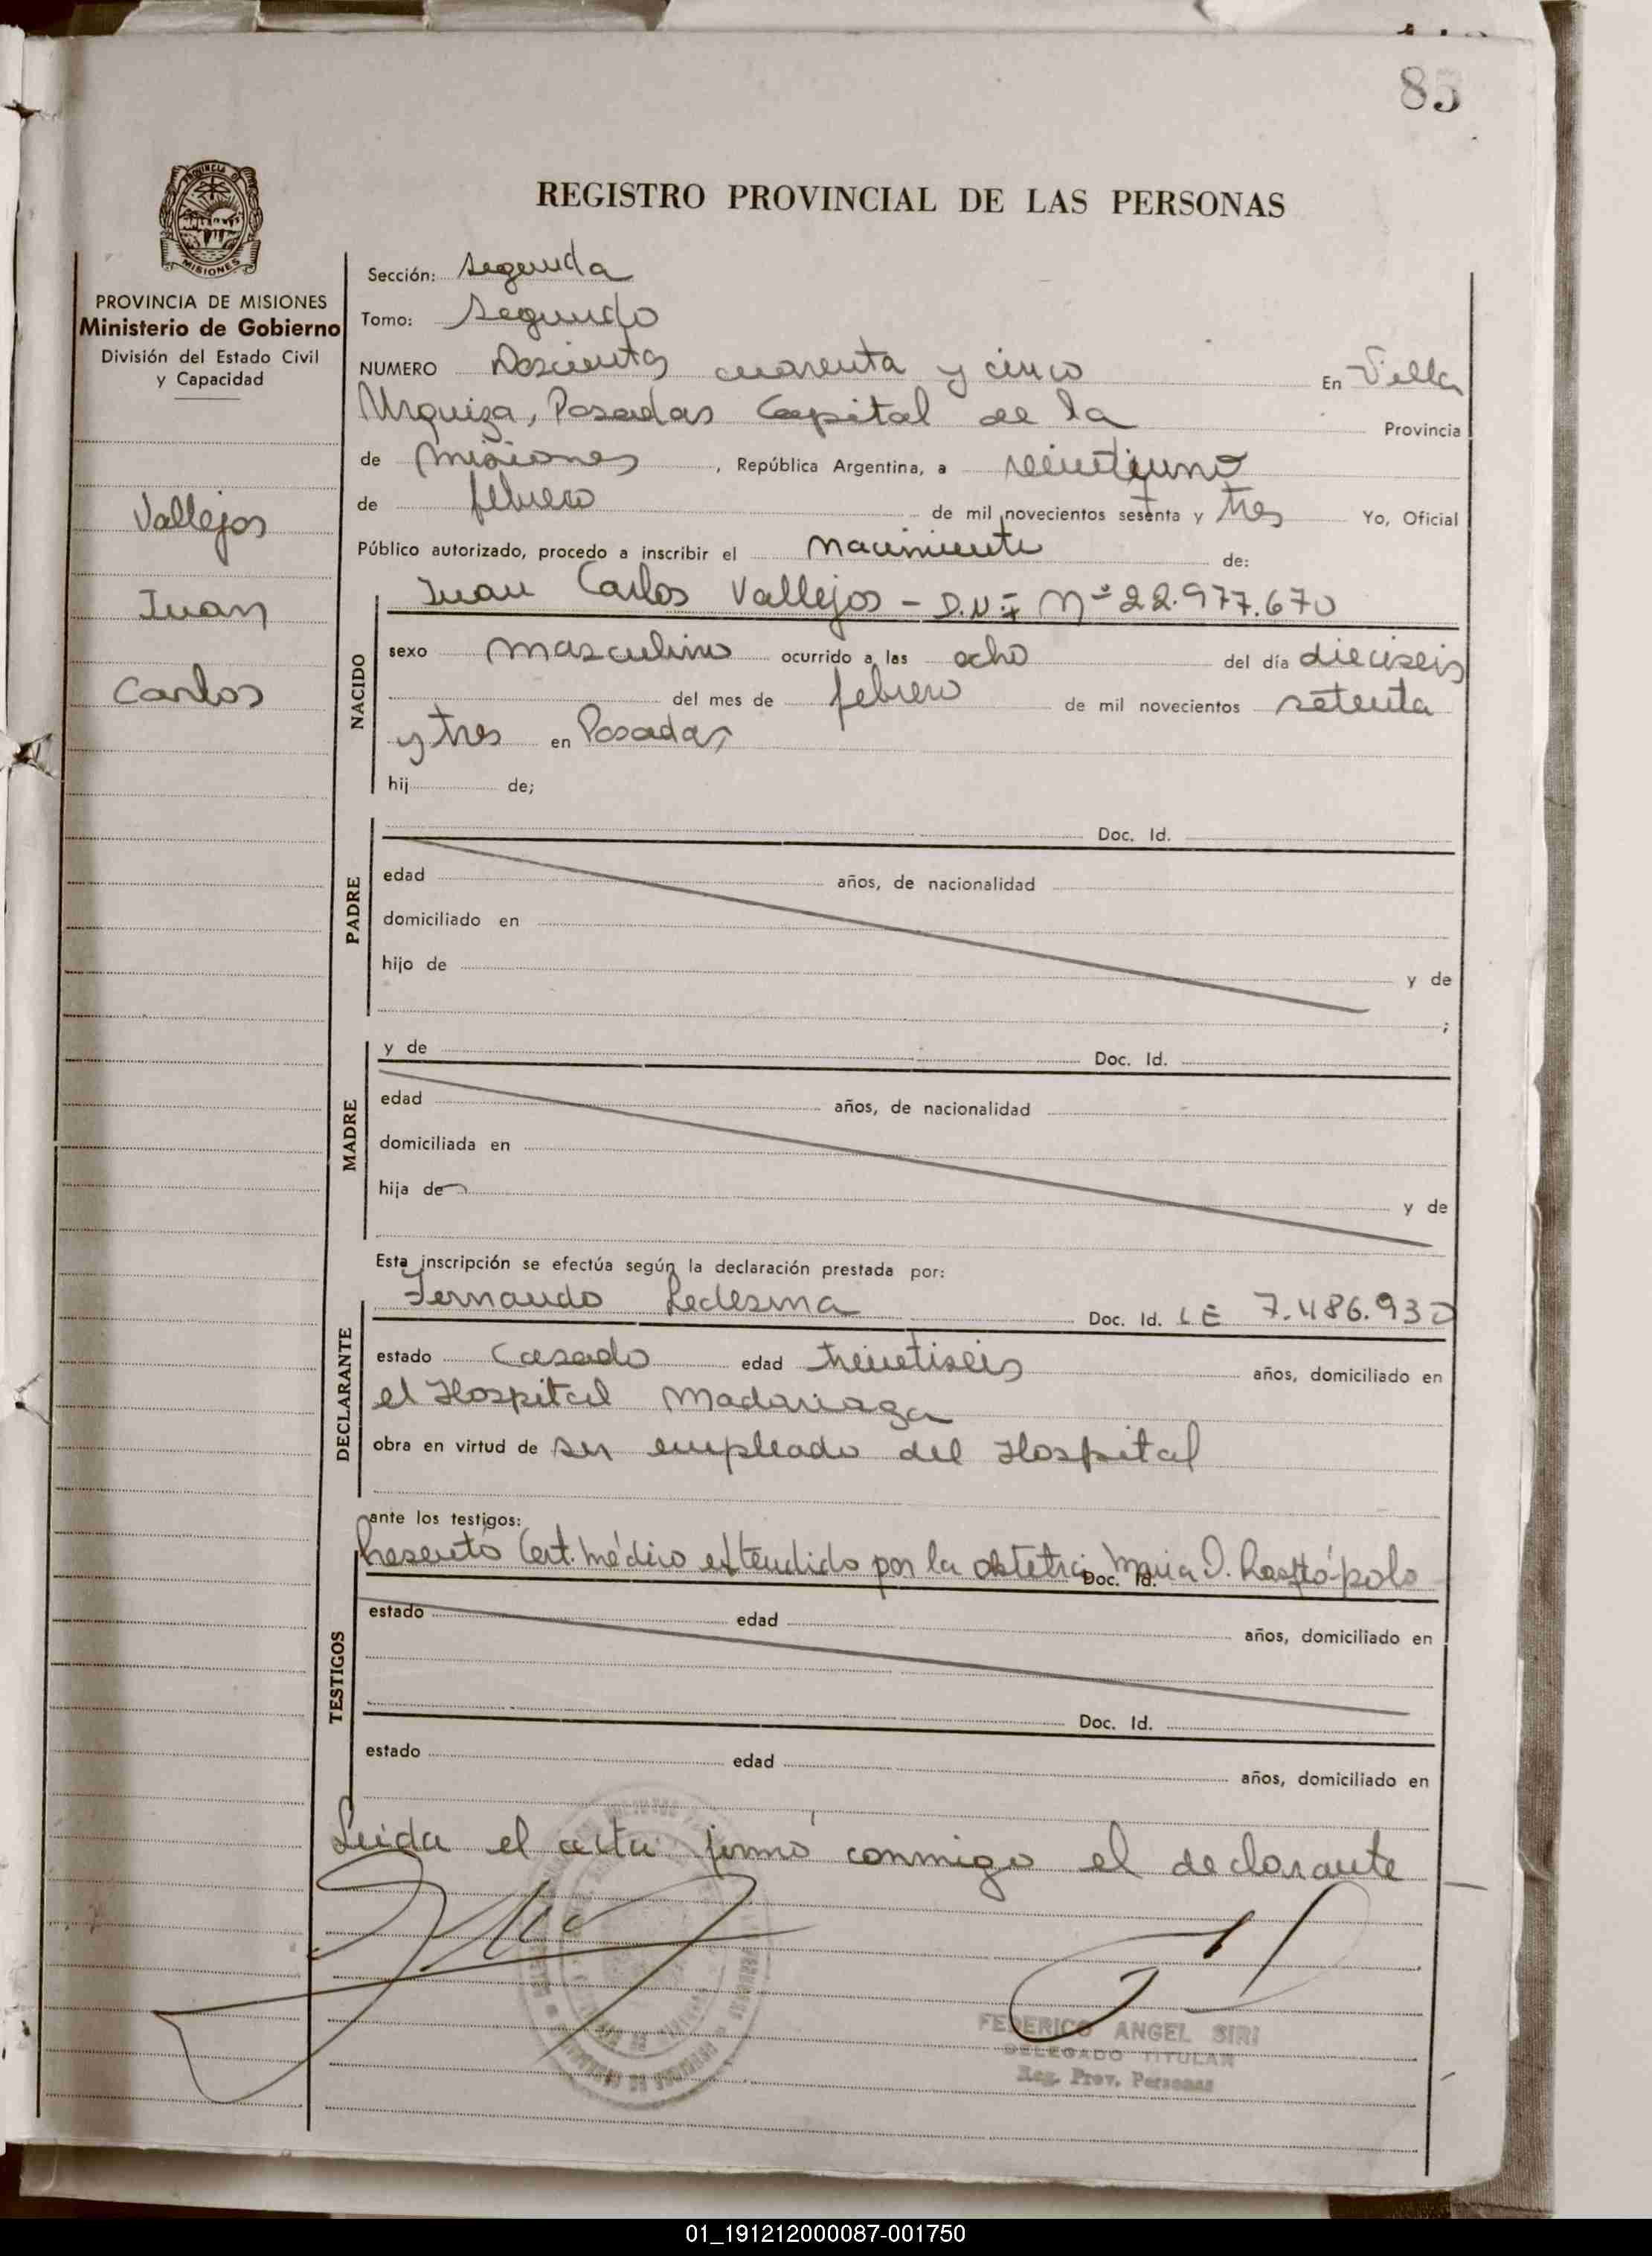 85
REGISTRO PROVINCIAL DE LAS PERSONAS
MISIONES
PROVINCIA DE MISIONES
Ministerio de Gobierno
División del Estado Civil
y Capacidad
Vallejos
Juan
Carlos
Sección: Segunda
Tomo: Segundo
NUMERO Doscientos cuarenta y cinco En Villa
Urquiza, Posadas Capital de la Provincia
de Misiones, República Argentina, a veintiuno
de febrero de mil novecientos sesenta y tres Yo, Oficial
Público autorizado, procedo a inscribir el nacimiento de:
Juan Carlos Vallejos - D.N.I Nº 22.977.670
NACIDO
sexo masculino ocurrido a las ocho del día dieciseis
del mes de febrero de mil novecientos setenta
y tres en Posadas
hij de;
PADRE
Doc. Id.
edad años, de nacionalidad
domiciliado en
hijo de y de
;
MADRE
y de Doc. Id.
edad años, de nacionalidad
domiciliada en
hija de y de
Esta inscripción se efectúa según la declaración prestada por:
DECLARANTE
Fernando Ledesma Doc. Id. LE 7.486.930
estado Casado edad treintiseis años, domiciliado en
el Hospital Madariaga
obra en virtud de ser empleado del Hospital
ante los testigos:
TESTIGOS
Presentó Cert. médico extendido por la obstetra Maria Doc. Id.
estado edad años, domiciliado en
Doc. Id.
estado edad años, domiciliado en
Leida el acta firmó conmigo el declarante
FEDERICO ANGEL SIRI
DELEGADO TITULAR
Reg. Prov. Personas
01_191212000087-001750